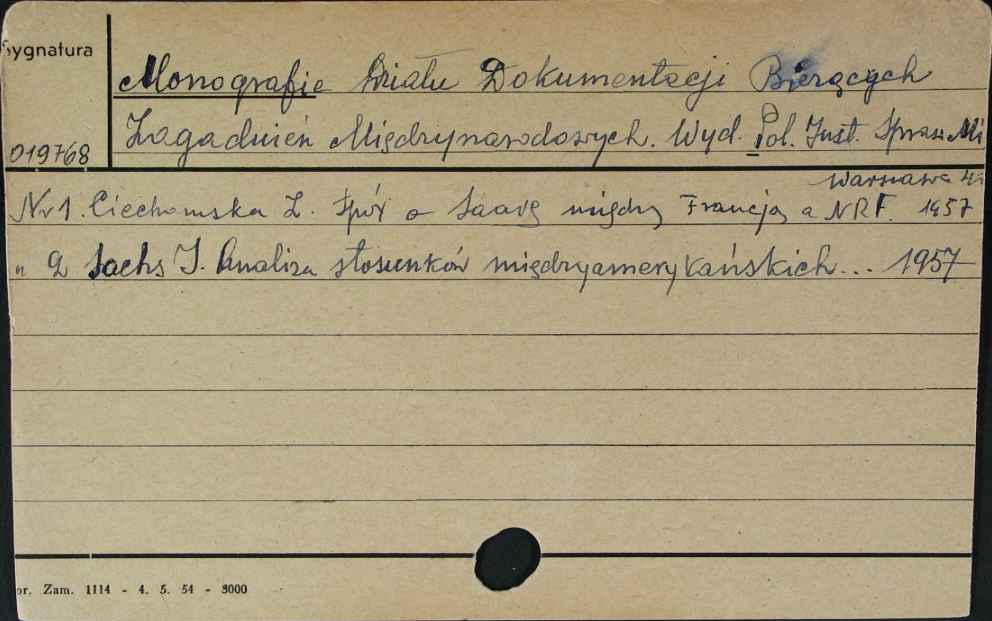 Sygnatura
Monografie Działu Dokumentacji Bieżących
Zagadnień Międzynarodowych. Wyd. Pol. Inst. Spraw Mi
019768
Warszawa
Nr 1. Ciechomska Z. Spór o Saarę między Francją a NRF. 1957
" 2 Sachs I. Analiza stosunków międzyamerykańskich... 1957
or. Zam. 1114 - 4. 5. 54 - 3000